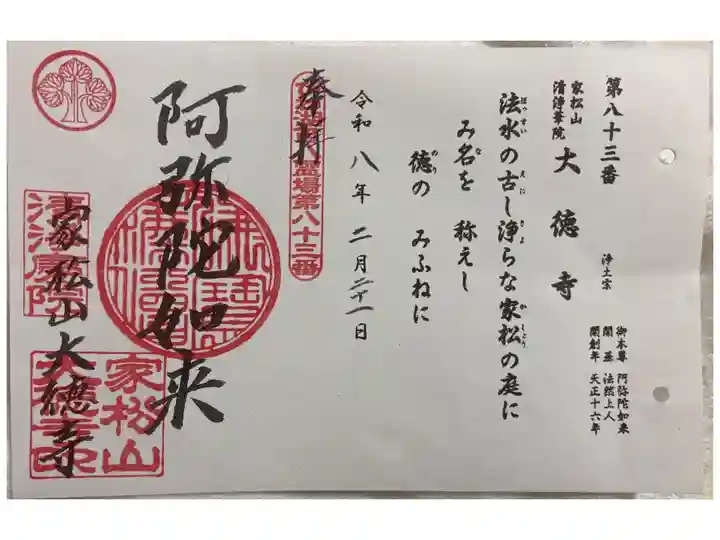 第八十三番
家松山
清浄華院
大徳寺
浄土宗
御本尊 阿弥陀如来
開基 法然上人
開創年 天正十六年
法水の古し浄らな家松の庭に
ほっすい えに きよ かしょう
み名を 称えし
な
徳の みふねに
のり
令和八年二月二十一日
奉拝
霊場第八十三番
阿弥陀如来
家松山大徳寺
家松山
大徳寺印